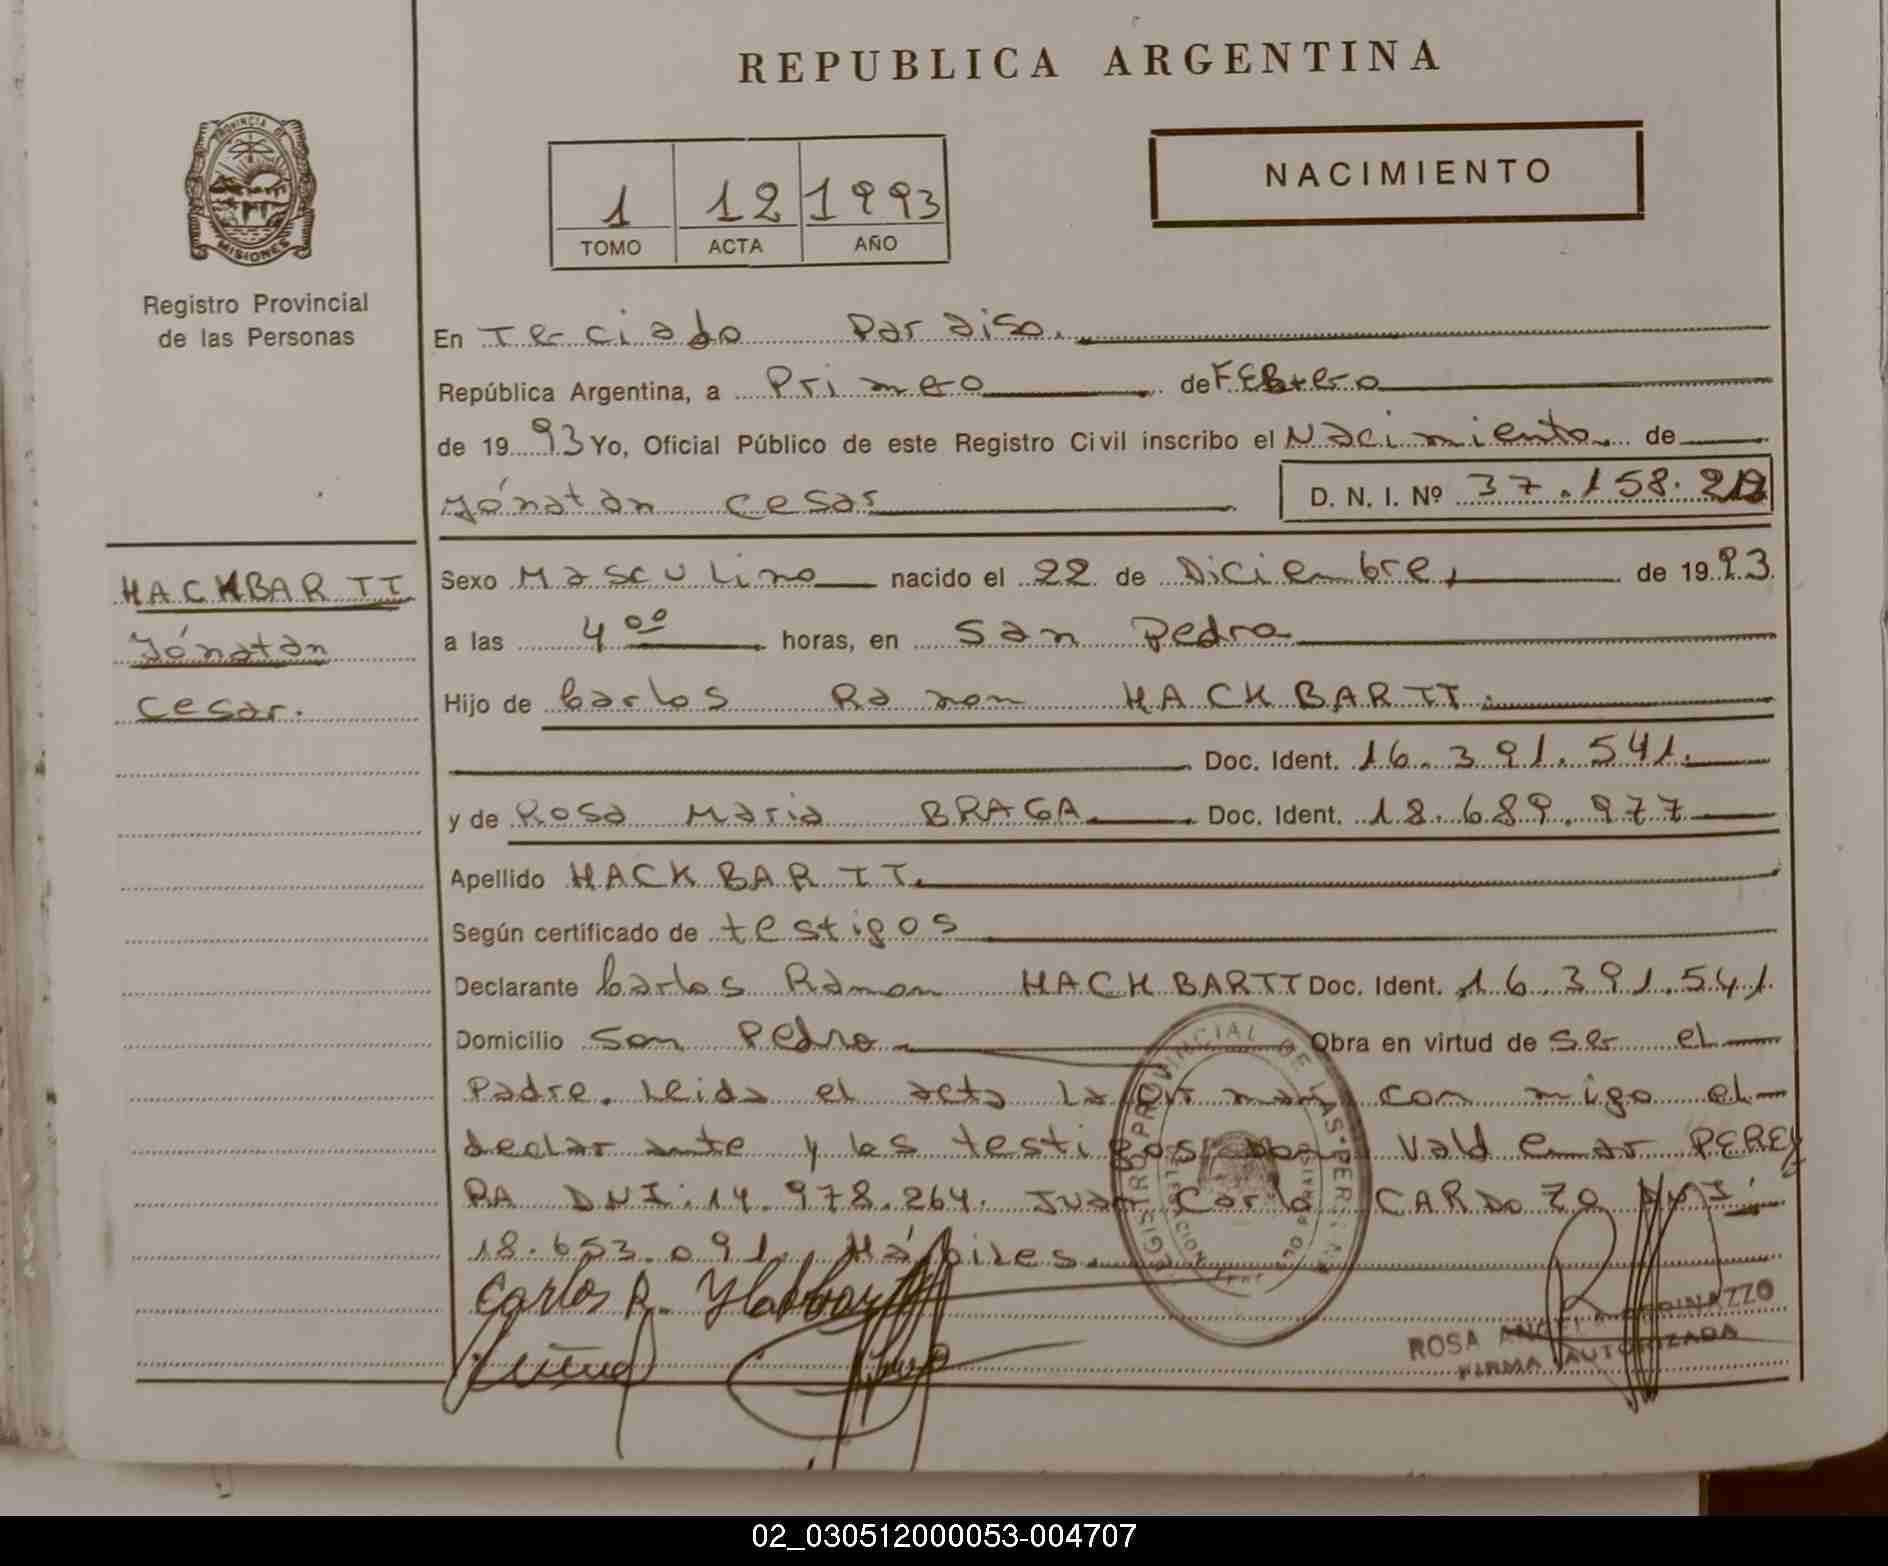 REPUBLICA ARGENTINA
PROVINCIA DE
MISIONES
Registro Provincial
de las Personas
1 12 1993
TOMO ACTA AÑO
NACIMIENTO
En Terciado Paraiso.
República Argentina, a Primero de FEBrero
de 19 93 Yo, Oficial Público de este Registro Civil inscribo el Nacimiento de
Jónatan cesar D. N. I. Nº 37.158.
HACKBARTT
Jónatan
cesar.
Sexo Masculino nacido el 22 de Diciembre, de 19 93
a las 4 00 horas, en San Pedro
Hijo de Carlos Ramon HACKBARTT.
Doc. Ident. 16.391.541.
y de Rosa Maria BRAGA Doc. Ident. 18.689.977
Apellido HACKBARTT.
Según certificado de testigos
Declarante Carlos Ramon HACKBARTT Doc. Ident. 16.391.541.
Domicilio San Pedro Obra en virtud de ser el
Padre. Leida el acta la firman con migo el
declarante y los testigos Valdemar PEREY
RA DNI:14.978.264. Juan Carlo CARDOZO DNI:
18.653.091. Hábiles.
Carlos R. Hackbartt
REGISTRO PROVINCIAL DE LAS PERSONAS
ROSA
FIRMA AUTORIZADA
02_030512000053-004707